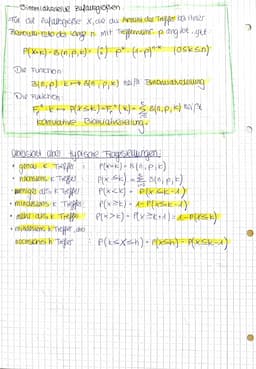 Binomialverteilte Zufallsgrößen
Für die Zufallsgröße X, die die Anzahl der Treffer bei einer
Bernoulli-Kette der Länge n mit Trefferwahr. p angibt, gilt
P(X=k) = B(n, p, k) = (n k) · p^k · (1-p)^n-k (0≤k≤n)
Die Funktion
B(n,p): k ↦ B(n, p, k) heißt Binomialverteilung
Die Funktion
k ↦ P(X≤k) = B(n, p, k) heißt
kumulative Binomialverteilung.
Übersicht und typische Fragestellungen:
• genau k Treffer : P(X=k) = B(n, p, k)
• höchstens k Treffer : P(X≤k) = Σ B(n, p, k)
• weniger als k Treffer : P(X<k) = P(X≤k-1)
• mindestens k Treffer : P(X≥k) = 1-P(X≤k-1)
• mehr als k Treffer : P(X>k) = P(X≥k+1) = 1-P(X≤k)
• mindestens k Treffer, und
höchstens h Treffer : P(k≤X≤h) = P(X≤h) - P(X≤k-1)